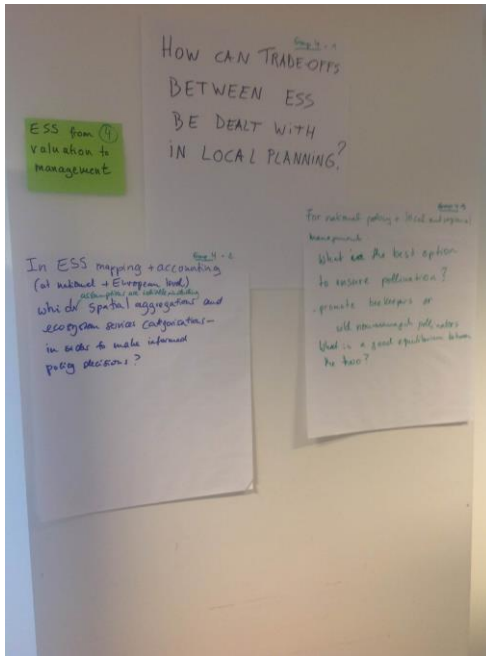 Group 4 - 1
HOW CAN TRADE-OFFS
BETWEEN ESS
BE DEALT WITH
IN LOCAL PLANNING?
ESS from 4
valuation to
management
Group 4 - 2
In ESS mapping + accounting
(at national + European level)
assumptions are including
which spatial aggregations and
ecosystem service categorisations
in order to make informed
policy decisions?
For national policy + local and regional
management
What is the best option
to ensure pollination?
- promote beekeepers or
wild pollinators
What is a good equilibrium between
the two?